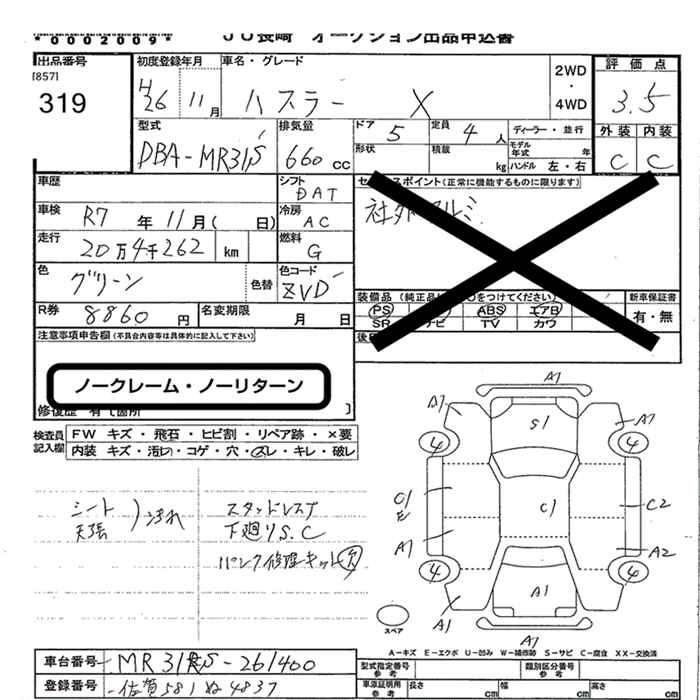 *0002009* JU長崎 オークション出品申込書
出品番号 初度登録年月 車名・グレード 2WD・4WD 評価点
[857]
319 H26 11月 ハスラー X 3.5
型式 排気量 ドア 5 定員 4人 ディーラー・並行 外装 内装
DBA-MR31S 660 CC 形状 積載 kg モデル年式 年 ハンドル 左・右 C C
車歴 シフト DAT セールスポイント(正常に機能するものに限ります)
車検 R7年11月( 日) 冷房 AC 社外アルミ
走行 20万4千262 km 燃料 G
色 グリーン 色替 色コード ZVD 装備品(純正品に○をつけてください) 新車保証書
R券 8860円 名変期限 月 日 PS ABS エアB 有・無
SR ナビ TV カワ
注意事項申告欄(不具合内容等は具体的に記入して下さい) 後日
ノークレーム・ノーリターン
修復歴 有〔箇所 〕
検査員記入欄 FW キズ・飛石・ヒビ割・リペア跡・×要
内装 キズ・汚れ・コゲ・穴・スレ・キレ・破レ
シート 天張 )汚れ
スタッドレス7
下廻りS.C
パンク修理キット欠
A1
A1 S1 A1
4 4
C1 C2
A1 A2
4 4
A1
A1 A1
スペア
A-キズ E-エクボ U-凹み W-補修跡 S-サビ C-腐食 XX-交換済
車台番号 MR31S-261400 型式指定番号 参考 類別区分番号 参考
登録番号 佐賀581ぬ4837 車添証明用 参考 長さ cm 幅 cm 高さ cm